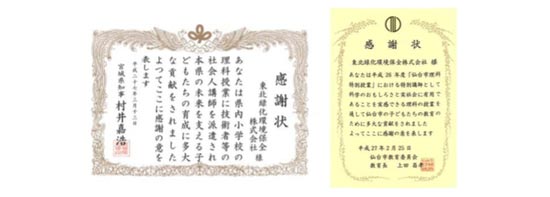 感謝状
東北緑化環境保全
株式会社 様
あなたは県内小学校の
理科授業に技術者等の
社会人講師を派遣され
本県の未来を支える子
どもたちの育成に多大
な貢献をされました
よってここに感謝の意を
表します
平成二十七年三月十三日
宮城県知事 村井嘉浩
感謝状
東北緑化環境保全株式会社 様
あなたは平成26年度「仙台市理科
特別授業」における特別講師として
科学のおもしろさと実社会に有用で
あることを実感できる理科の授業を実
践して仙台市の子どもたちの教育の
ために多大な貢献をされました
よってここに感謝の意を表します
平成27年2月25日
仙台市教育委員会
教育長 上田昌孝